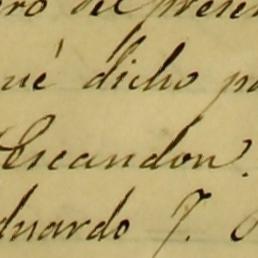 ero del presen
ué dicho pa
Escandon.
duardo J.